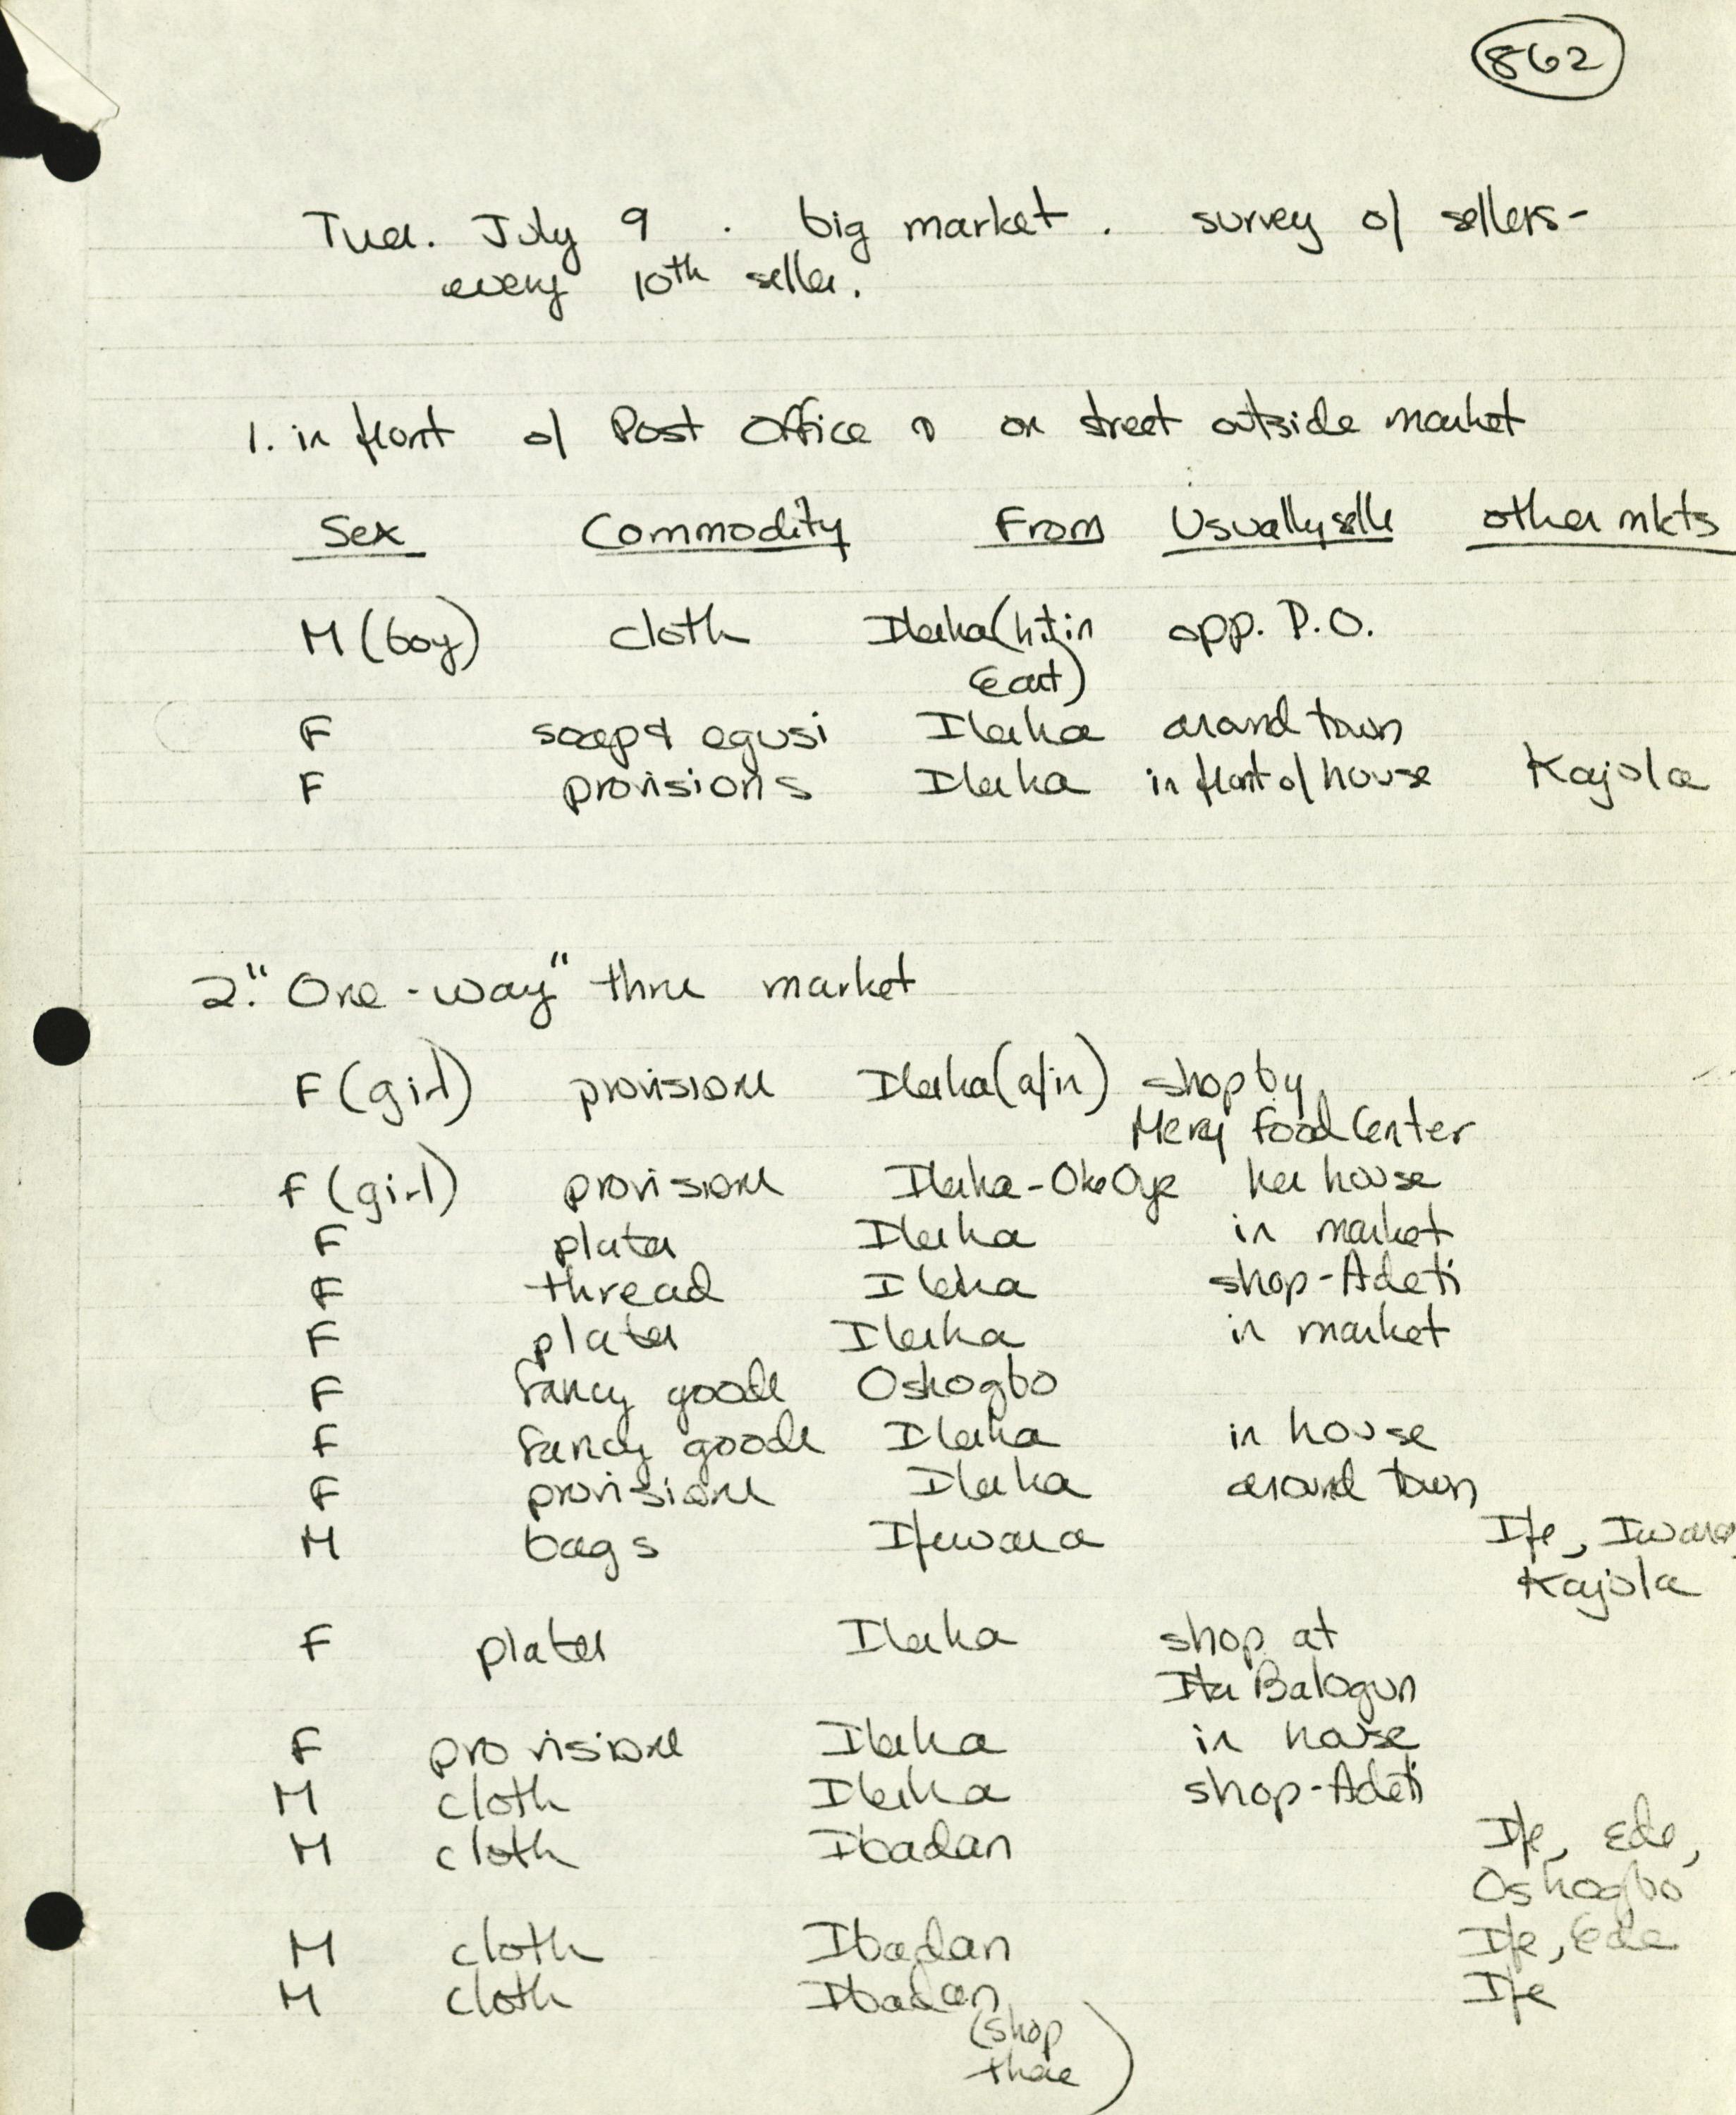 862
Tues. July 9 . big market . survey of sellers-
every 10th seller.
1. in front of Post Office & on street outside market
Sex Commodity From Usually sells other mkts
M (boy) cloth Ilesha opp. P.O.
East)
F soap & egusi Ilesha around town
F provisions Ilesha in front of house Kajola
2. "One-way" thru market
F (girl) provisions Ilesha shop by
Mercy Food Center
F (girl) provisions Ilesha-Oke Oye her house
F plates Ilesha in market
F thread Ilesha shop-Adeti
F plates Ilesha in market
F fancy goods Oshogbo
F fancy goods Ilesha in house
F provisions Ilesha around town
M bags Ifewara Ife, Iwara,
Kajola
F plates Ilesha shop at
Ita Balogun
F provisions Ilesha in house
M cloth Ilesha shop-Adeti
M cloth Ibadan Ife, Ede,
Oshogbo
M cloth Ibadan Ife, Ede
M cloth Ibadan Ife
(shop
there)